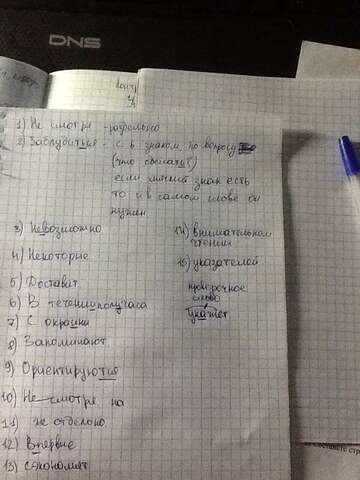 DNS
1) Не смотря - раздельно
2) Заблудиться - с ь знаком, по вопросу
(что сделать?)
если мягкий знак есть
то и в самом слове он
нужен
3) Невозможно
4) Некоторые
5) Доставит
6) В течении получаса
7) С окраины
8) Запоминают
9) Ориентируются
10) Не смотря на
11) не отдельно
12) Впервые
13) сэкономят
14) внимательном
чтении
15) указателей
проверочное
слово
укажет